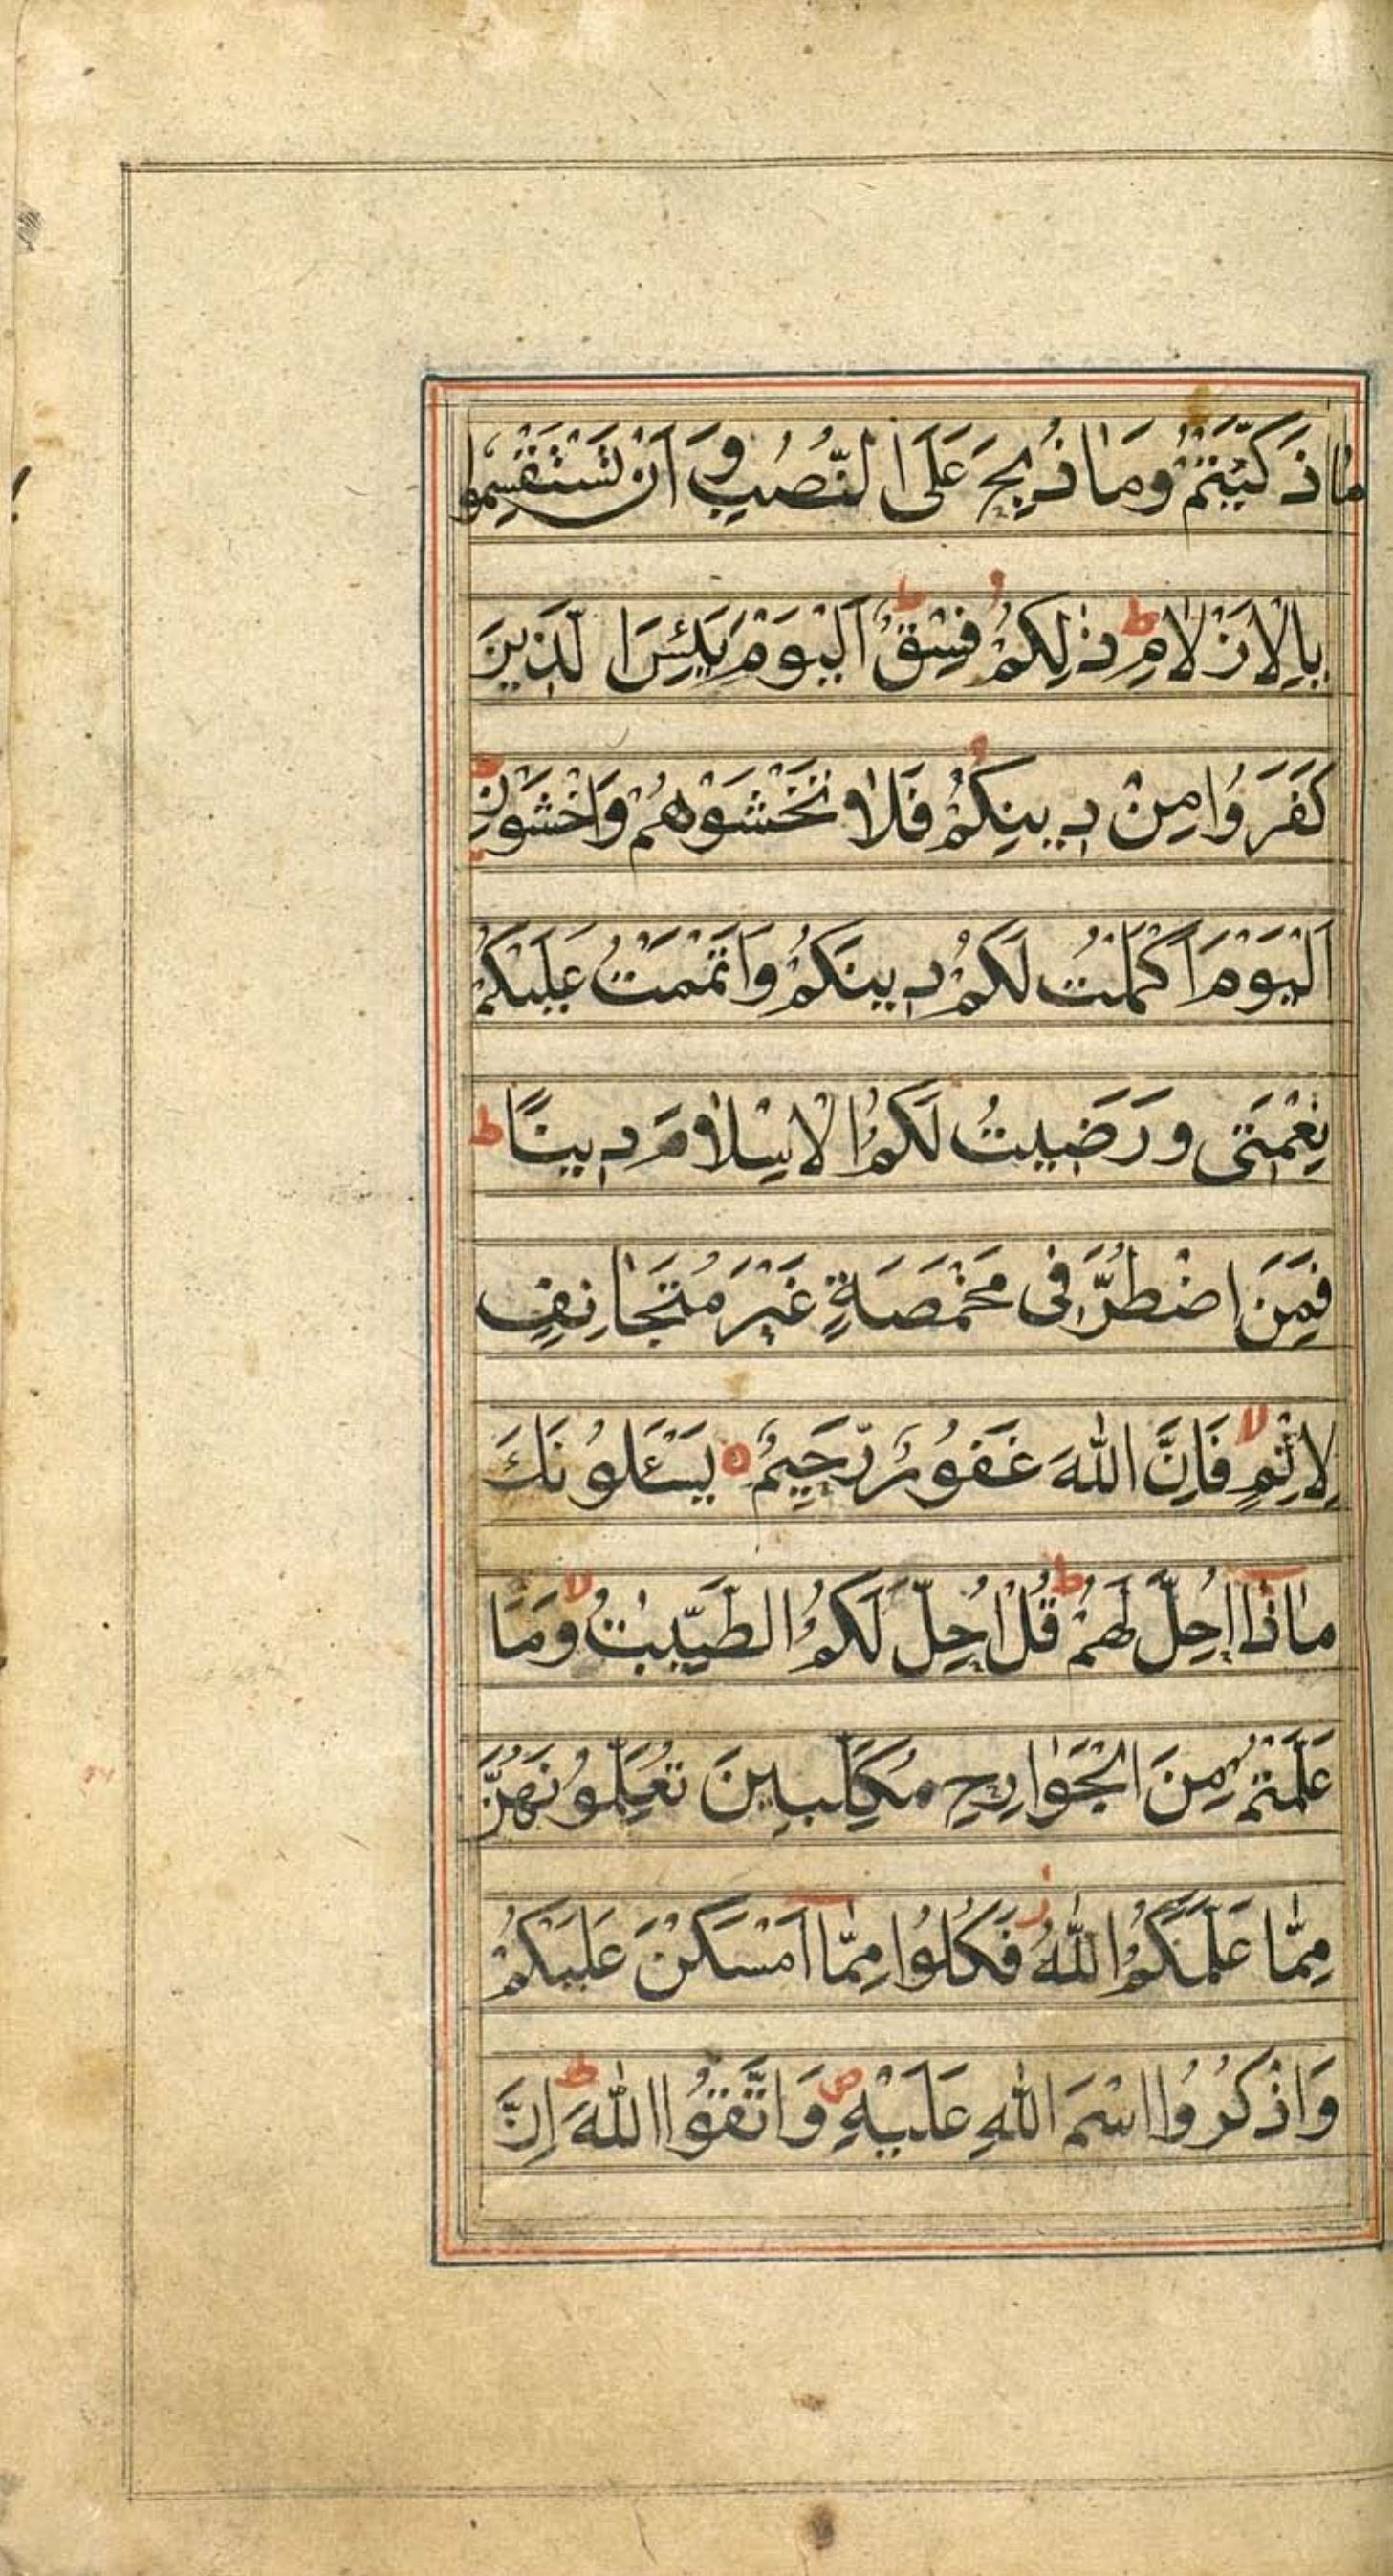 مَا ذَكَّيْتُمْ وَمَا ذُبِحَ عَلَى النُّصُبِ وَاَنْ تَسْتَقْسِمُوا
بِالْاَزْلَامِ ط ذٰلِكُمْ فِسْقٌ ط اَلْيَوْمَ يَئِسَ الَّذِينَ
كَفَرُوا مِنْ دِينِكُمْ فَلَا تَخْشَوْهُمْ وَاخْشَوْنِ ط
اَلْيَوْمَ اَكْمَلْتُ لَكُمْ دِينَكُمْ وَاَتْمَمْتُ عَلَيْكُمْ
نِعْمَتِى وَرَضِيتُ لَكُمُ الْاِسْلَامَ دِينًا ط
فَمَنِ اضْطُرَّ فِى مَخْمَصَةٍ غَيْرَ مُتَجَانِفٍ
لِاِثْمٍ لا فَاِنَّ اللّٰهَ غَفُورٌ رَّحِيمٌ ه يَسْـَٔلُونَكَ
مَاذَا اُحِلَّ لَهُمْ ط قُلْ اُحِلَّ لَكُمُ الطَّيِّبٰتُ لا وَمَا
عَلَّمْتُمْ مِنَ الْجَوَارِحِ مُكَلِّبِينَ تُعَلِّمُونَهُنَّ
مِمَّا عَلَّمَكُمُ اللّٰهُ ز فَكُلُوا مِمَّا اَمْسَكْنَ عَلَيْكُمْ
وَاذْكُرُوا اسْمَ اللّٰهِ عَلَيْهِ ص وَاتَّقُوا اللّٰهَ ط اِنَّ